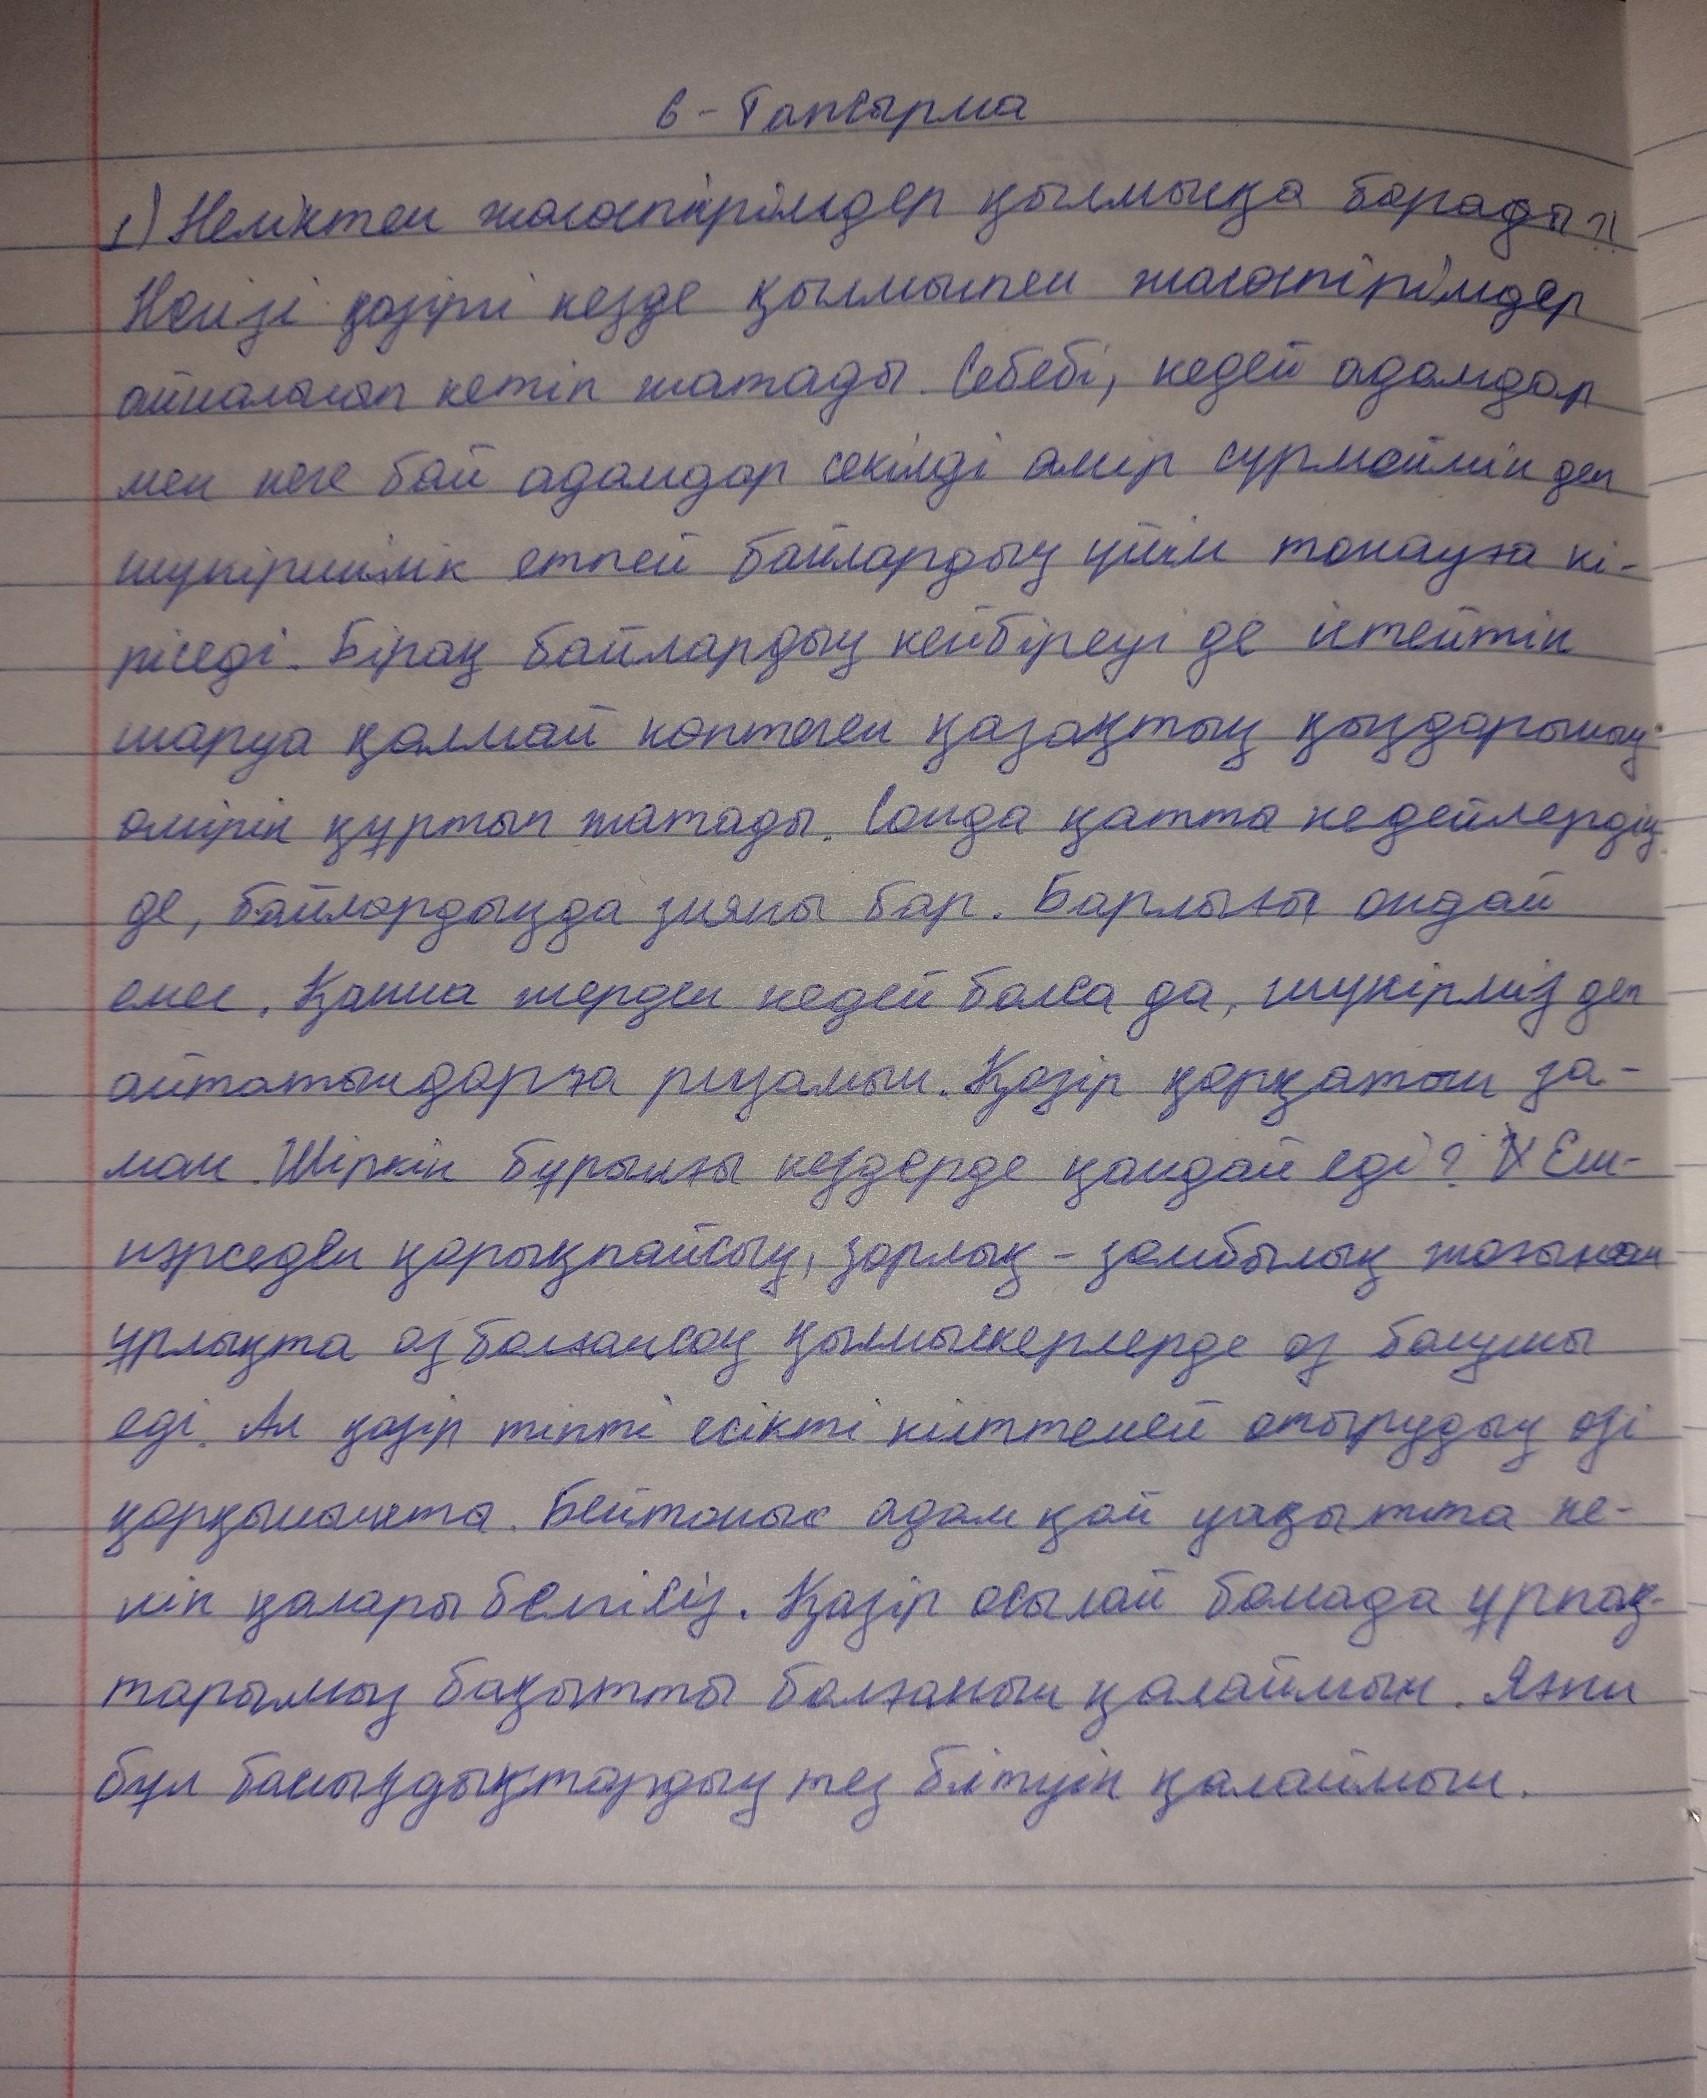 6 - Тапсырма
1) Неліктен жасөспірімдер қылмысқа барады?!
Негізі қазіргі кезде қылмыспен жасөспірімдер
айналысып кетіп жатады. Себебі, кедей адамдар
мен неге бай адамдар секілді өмір сүрмеймін деп
шүкіршілік етпей байлардың үйін тонауға кі-
ріседі. Бірақ байлардың кейбіреуі де істейтін
шаруа қалмай көптеген қазақтың қыздарының
өмірін құртып жатады. Сонда қатта кедейлердің
де, байлардыңда зияны бар. Барлығы ондай
емес. Қанша жерден кедей болса да, шүкірміз деп
айтатындарға ризамын. Қазір қорқатын за-
ман. Шіркін бұрынғы кездерде қандай еді? Еш-
нәрседен қорықпайсың, зорлық - зомбылық жағынан
ұрлықта аз болғансоң қылмыскерлерде аз болушы
еді. Ал қазір тіпті есікті кілттемей отырудың өзі
қорқынышта. Бейтаныс адам қай уақытта ке-
ліп қалары белгісіз. Қазір осылай болсада ұрпақ-
тарымыз бақытты болғанын қалаймын. Яғни
бұл бассыздықтардың тез бітуін қалаймын.